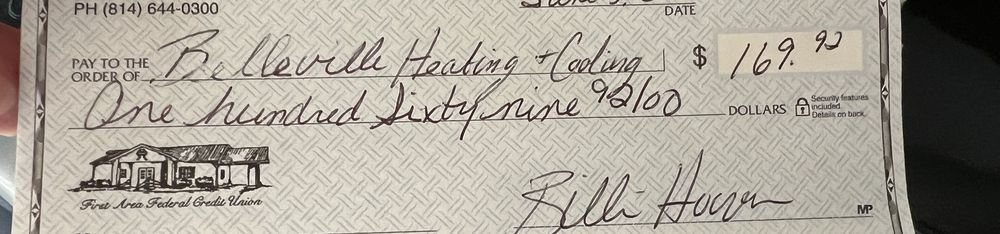 PH (814) 644-0300
DATE
PAY TO THE ORDER OF Belleville Heating + Cooling $ 169.92
One hundred Sixty nine 92/00 DOLLARS Security features included. Details on back.
First Area Federal Credit Union
Billi Hoover MP